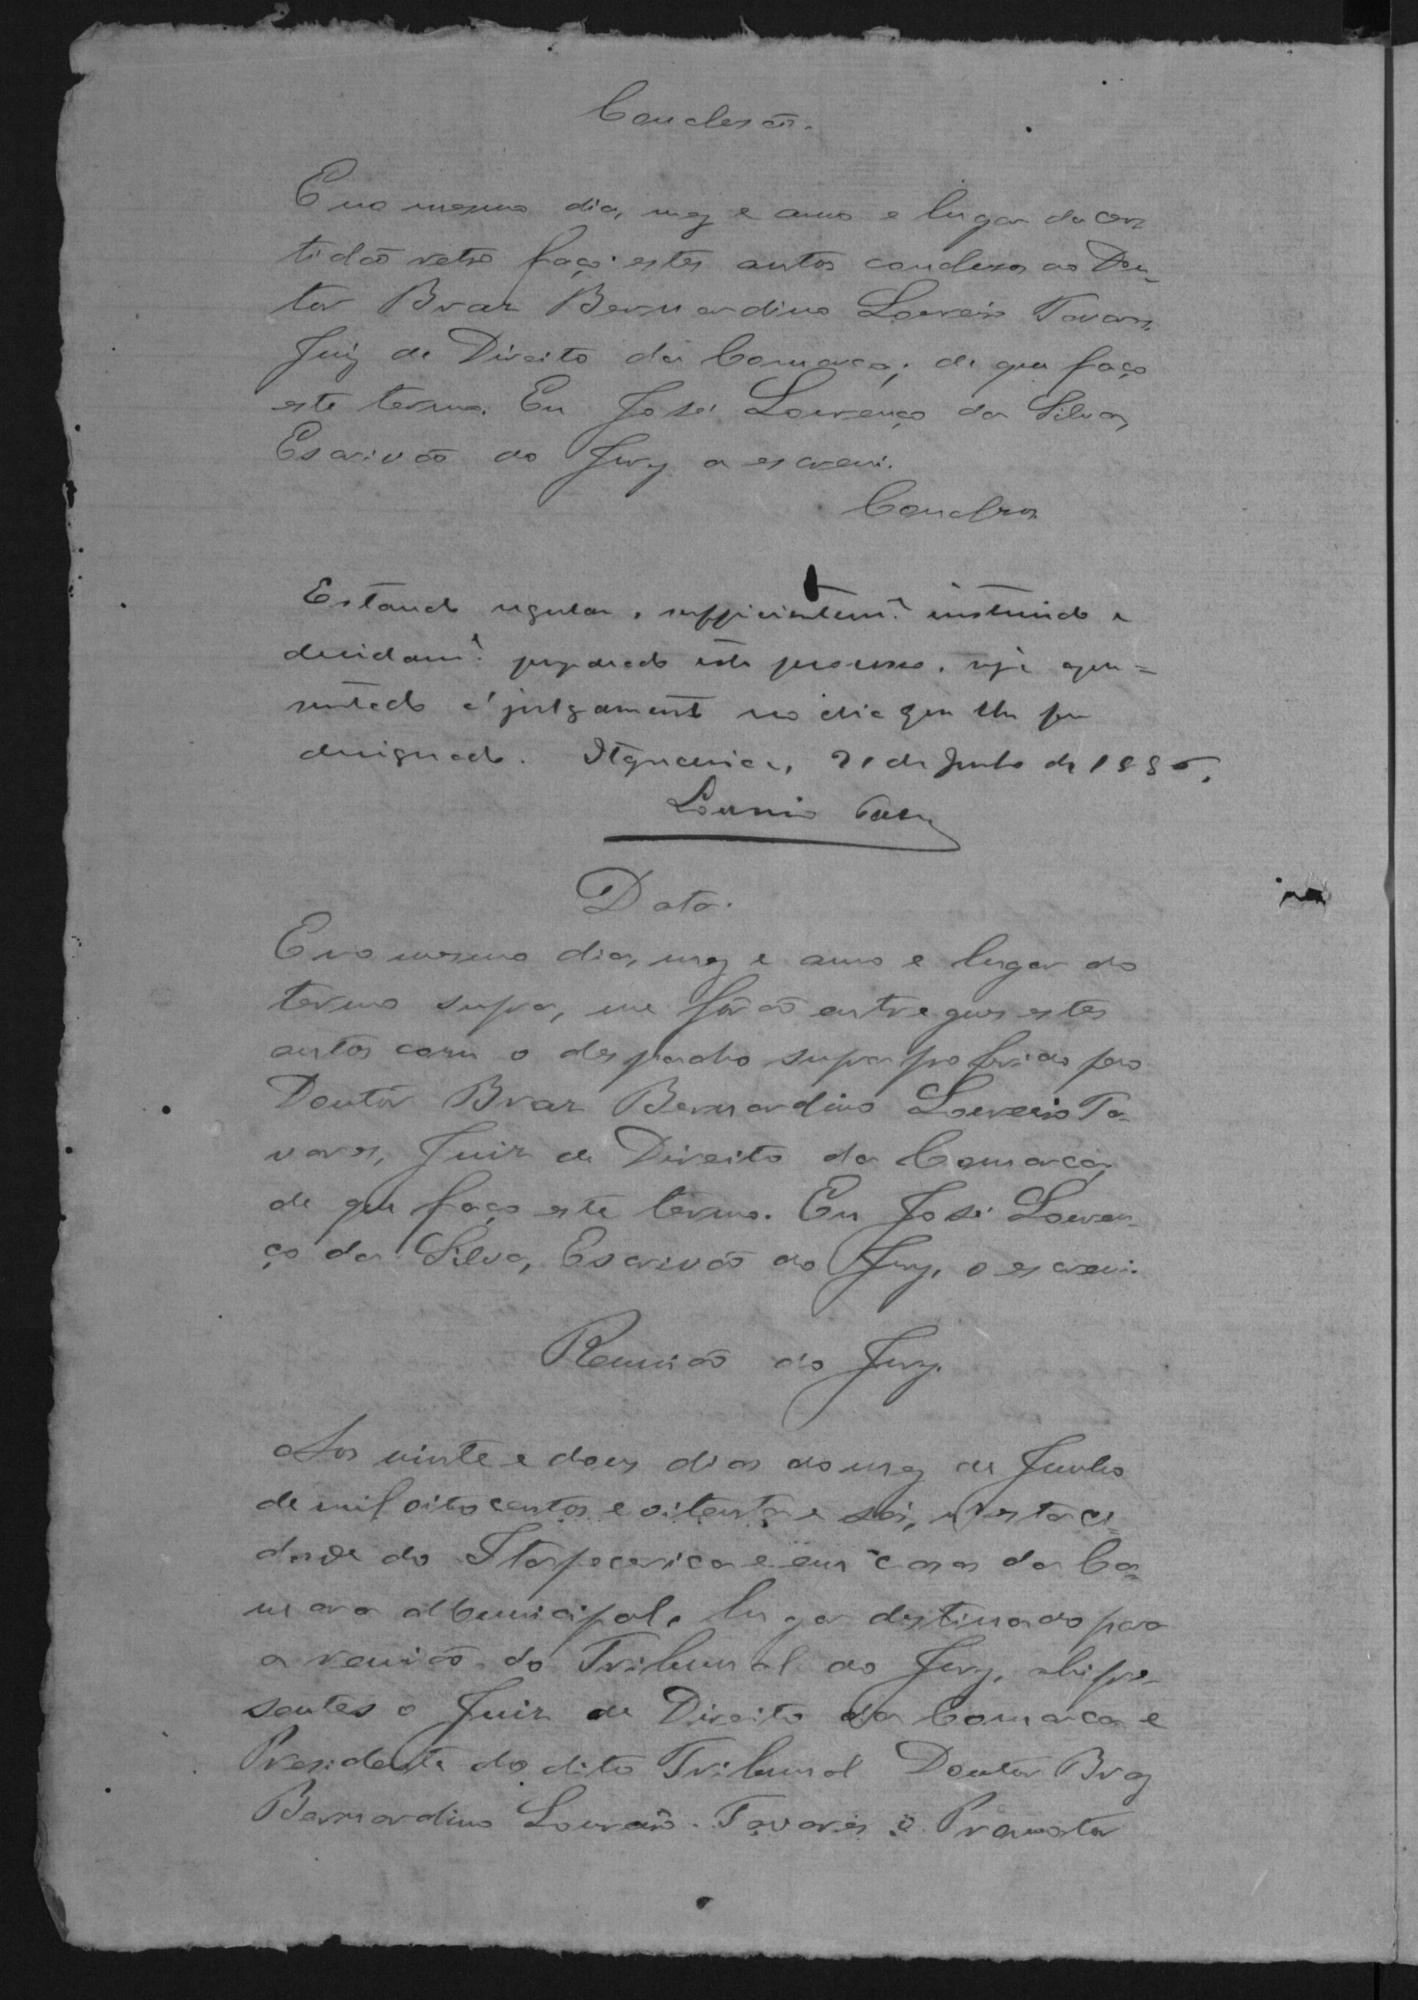 Conclusão.
E no mesmo dia, mez e anno e lugar da cer
tidão retro faço estes autos conclusos ao Dou-
tor Braz Bernardino Loureiro Tavares,
Juiz de Direito da Comarca; de que faço
este termo. Eu José Lourenço da Silva,
Escrivão do Jury o escrevi.
Conclsos
Estando regular, sufficientemte. instruido e
devidamte. preparado este processo, seja apre=
sentado á julgamento no dia que lhe for
designado. Itapecerica, 21 de Junho de 1886.
Loureiro Tavares
Data.
E no mesmo dia, mez e anno e lugar do
termo supra, me forão entregues estes
autos com o despacho supra proferido pelo
Doutor Braz Bernardino Loureiro Ta-
vares, Juiz de Direito da Comarca,
de que faço este termo. Eu José Louren-
ço da Silva, Escrivão do Jury, o escrevi.
Reunião do Jury.
Aos vinte e dous dias do mez de Junho
de mil oitocentos e oitenta e seis, nesta ci-
dade do Itapecerica e em casa da Ca-
mara Municipal, lugar destinado para
a reunião do Tribunal do Jury, ahi pre-
sentes o Juiz de Direito da Comarca e
Presidente do dito Tribunal Doutor Braz
Bernardino Loureiro Tavares o Promotor